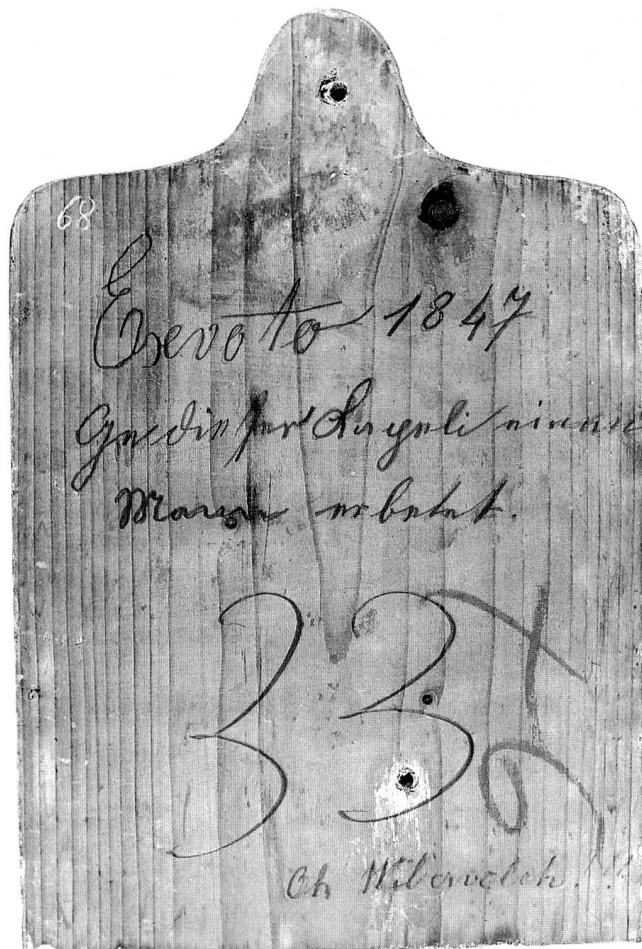 68
Exevoto 1847
In dieser Kapeli einen
Mann erbetet.
33
Oh Wibervolch!!!